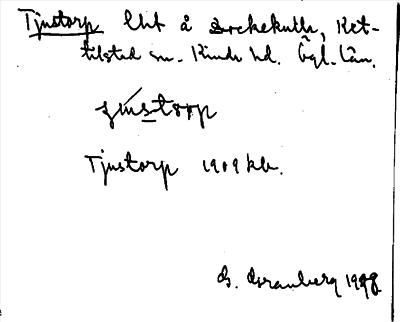 Tjustorp lht å Borckekulla, Ket-
tilstad sn. Kinda hd. Ögl. län.
justorp
Tjustorp 1909 kb.
G. Granberg 1928